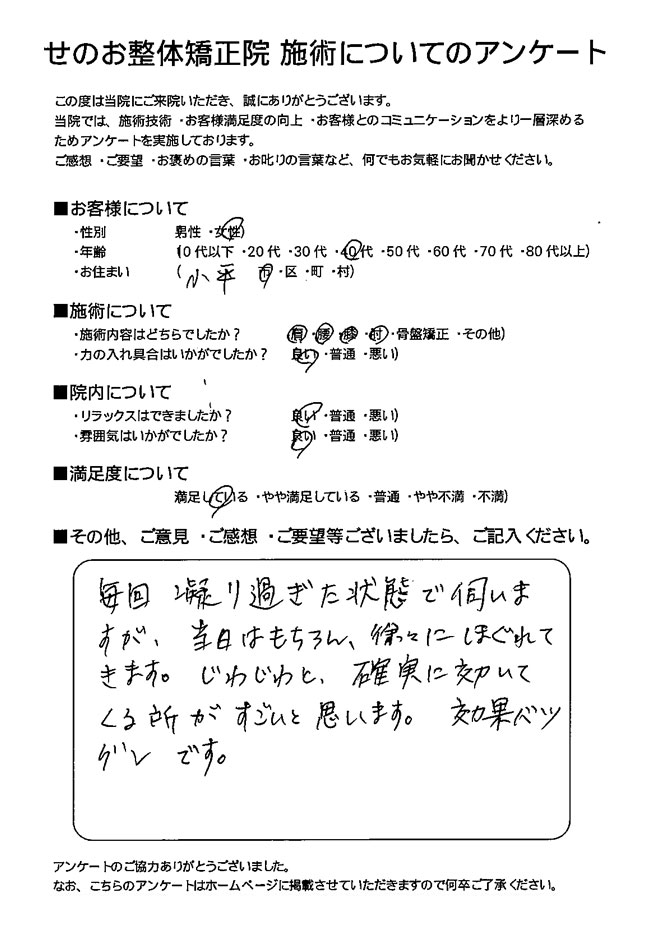 せのお整体矯正院 施術についてのアンケート
この度は当院にご来院いただき、誠にありがとうございます。
当院では、施術技術・お客様満足度の向上・お客様とのコミュニケーションをより一層深める
ためアンケートを実施しております。
ご感想・ご要望・お褒めの言葉・お叱りの言葉など、何でもお気軽にお聞かせください。
■お客様について
・性別 男性・女性)
・年齢 (10代以下・20代・30代・40代・50代・60代・70代・80代以上)
・お住まい (小平 市・区・町・村)
■施術について
・施術内容はどちらでしたか? (肩・腰・膝・肘・骨盤矯正・その他)
・力の入れ具合はいかがでしたか? 良い・普通・悪い)
■院内について
・リラックスはできましたか? 良い・普通・悪い)
・雰囲気はいかがでしたか? 良い・普通・悪い)
■満足度について
満足している・やや満足している・普通・やや不満・不満)
■その他、ご意見・ご感想・ご要望等ございましたら、ご記入ください。
毎回 凝り過ぎた状態で伺いま
すが、当日はもちろん、徐々にほぐれて
きます。じわじわと、確実に効いて
くる所がすごいと思います。効果バツ
グン です。
アンケートのご協力ありがとうございました。
なお、こちらのアンケートはホームページに掲載させていただきますので何卒ご了承ください。